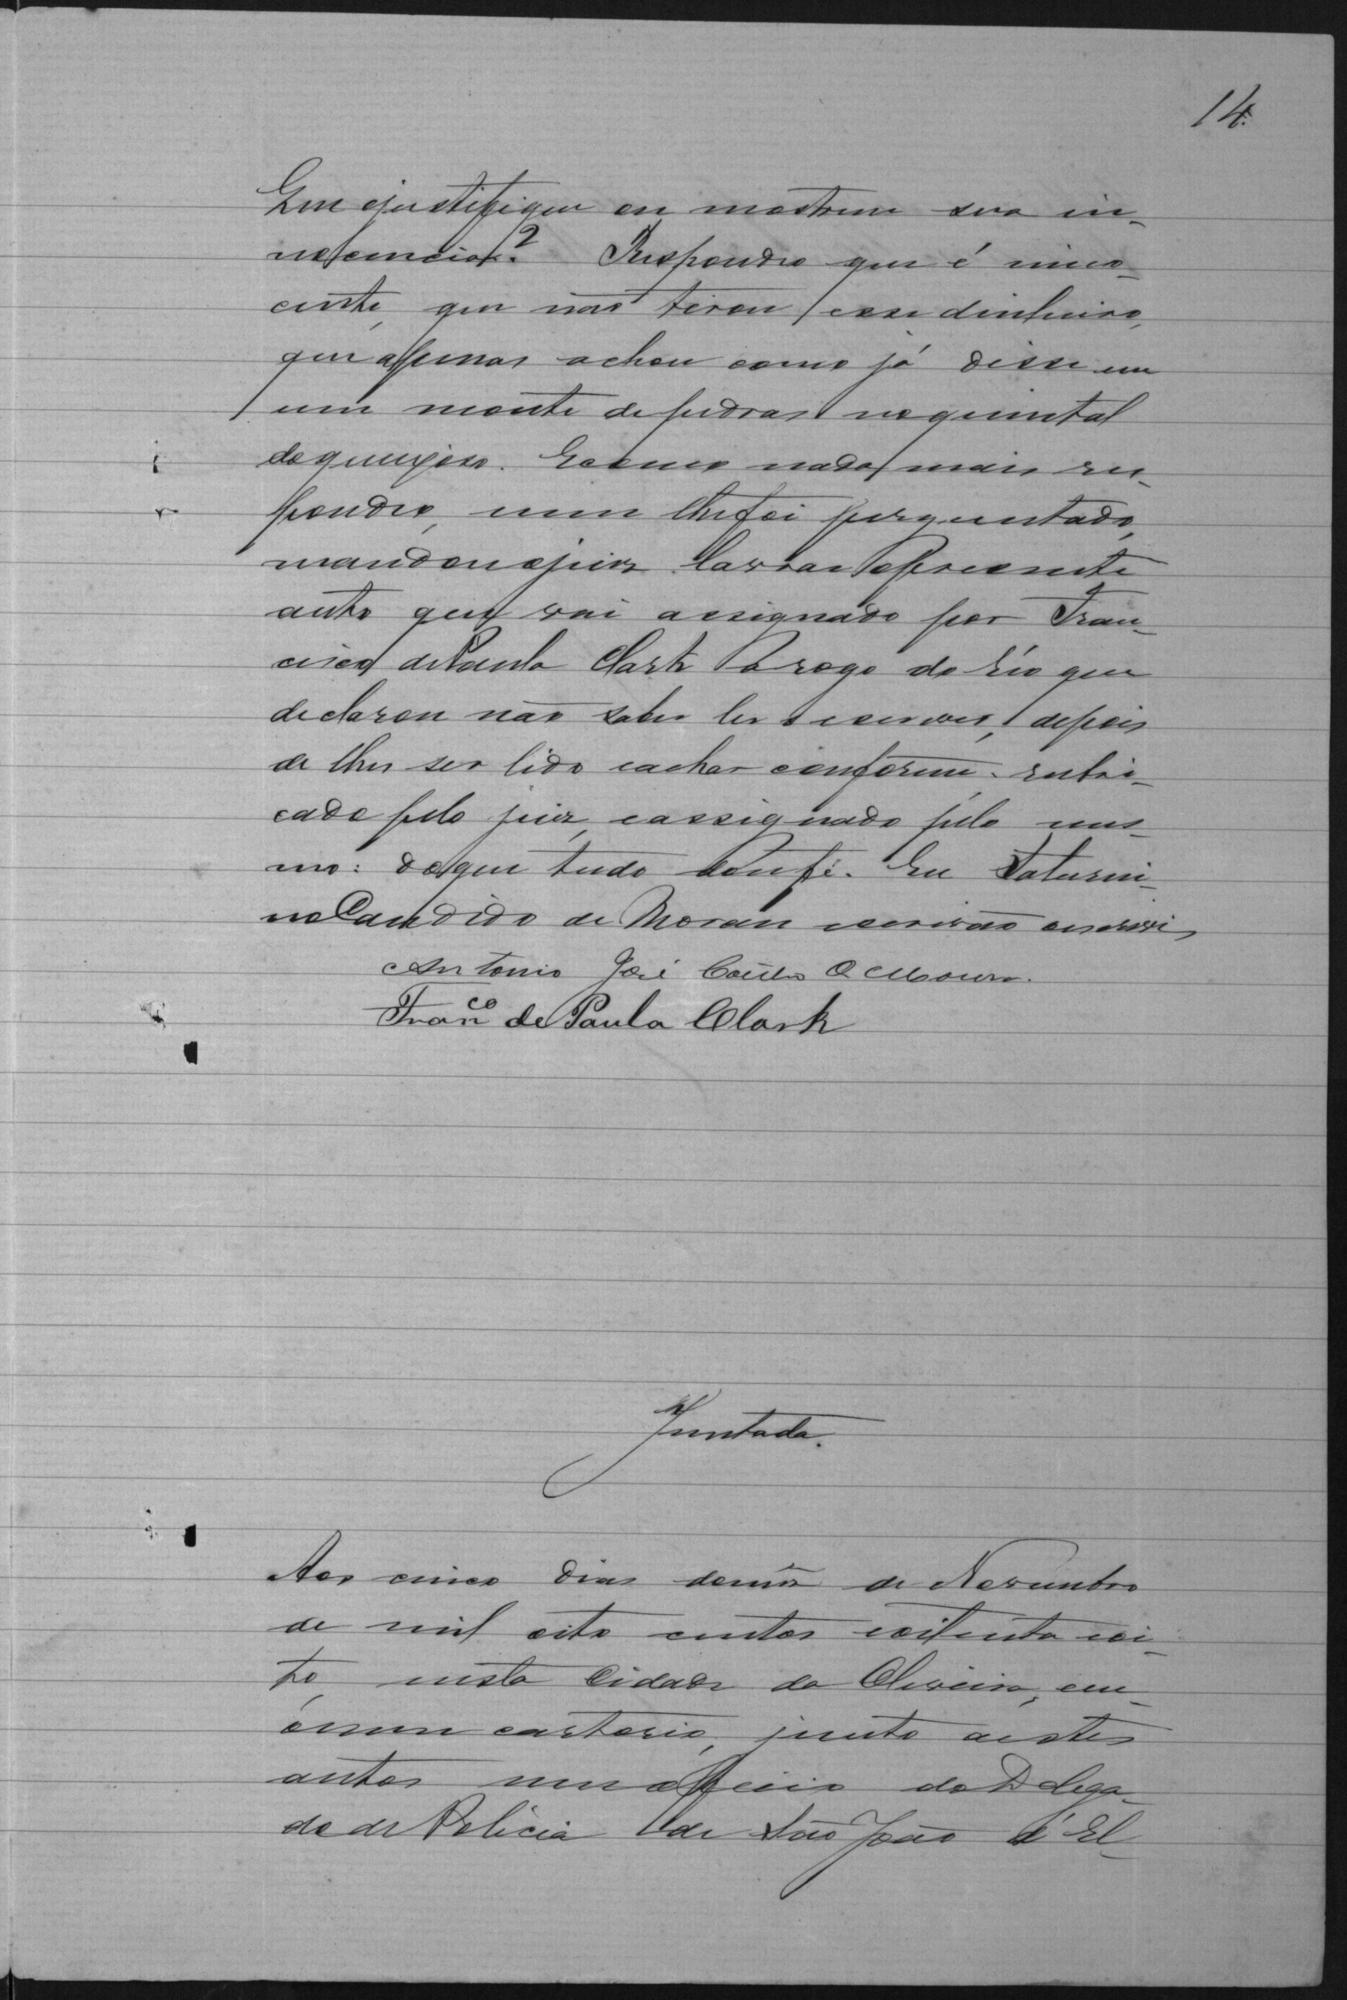 14.
que ejustifique ou mostrem sua in-
nocencia? Respondeo que é inno-
cente, que não tirou esse dinheiro,
que apenas achou como já disse em
um monte de pedras no quintal
do queixoso. E como nada mais res-
pondeo, nem lhe foi perguntado,
mandou o juiz lavrar o presente
auto que vai assignado por Fran-
cisco de Paula Clark a rogo do réo que
declarou não saber ler e escrever, depois
de lhes ser lido e achar conforme. rubri-
cado pelo juiz, e assignado pelo mes-
mo: do que tudo dou fé. Eu Saturni-
no Candido de Moraes escrivão escrevi
Antonio José Moura.
Franco de Paula Clark
Juntada.
Aos cinco dias do mez de Novembro
de mil oito centos e oitenta e oi-
to, nesta Cidade da Oliveira, em
o meu cartorio, junto a estes
autos um officio do Delega-
do de Policia de São João d'El-